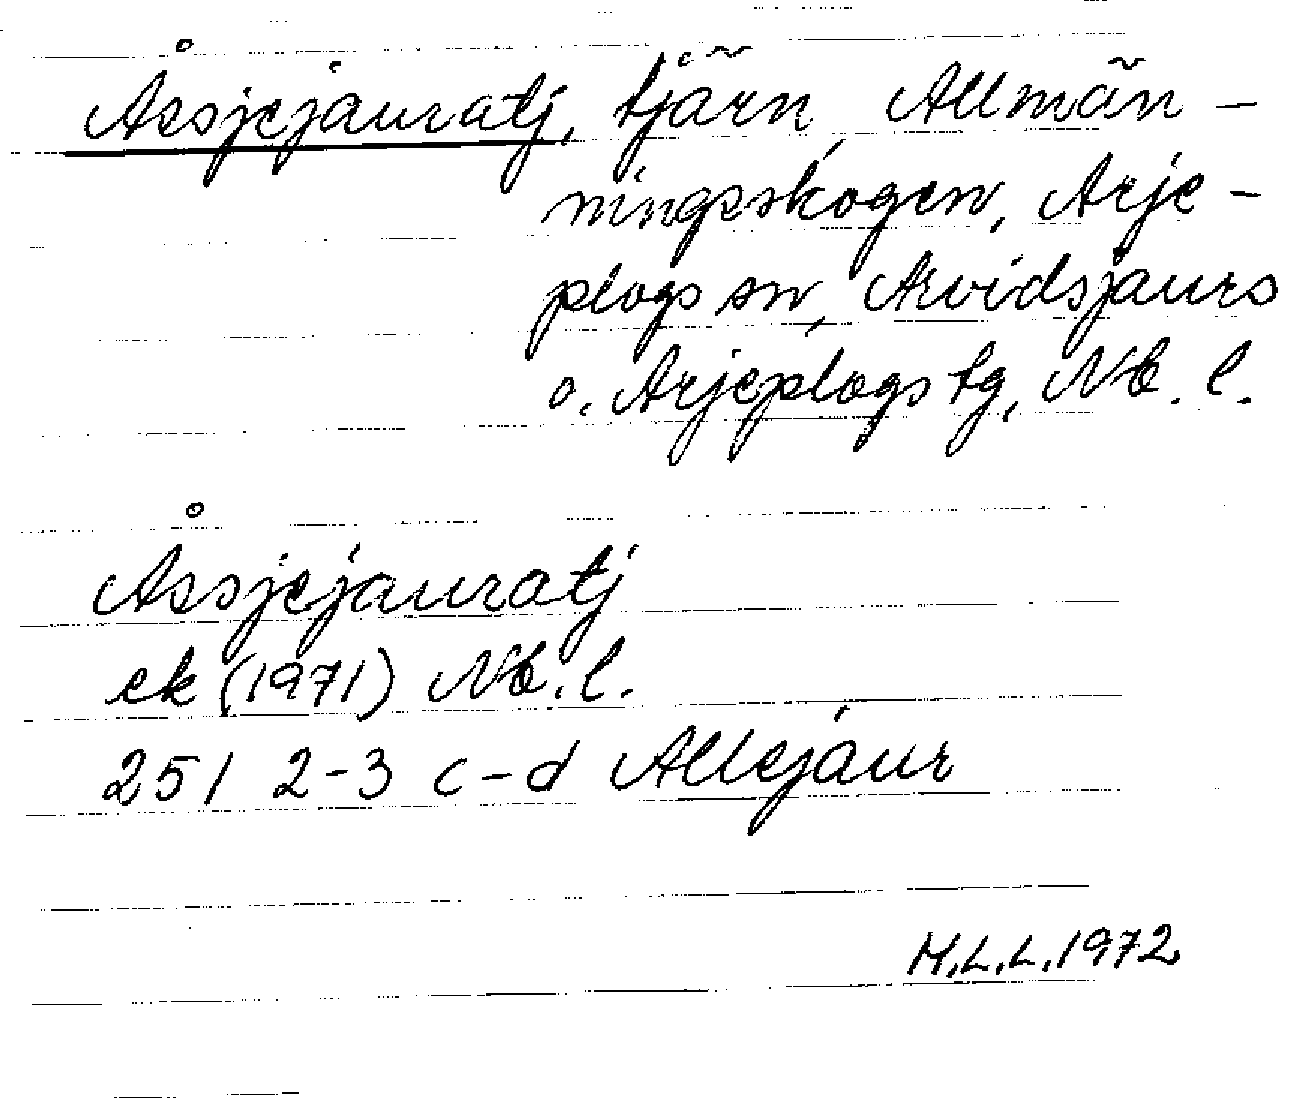 Åssjejauratj, tjärn, Allmän-
ningsskogen, Arje-
plogs sn, Arvidsjaurs
o. Arjeplogs tg, Nb. l.
Åssjejauratj
ek (1971) Nb. l.
25 I 2-3 c-d Allejaur
M.L.L. 1972